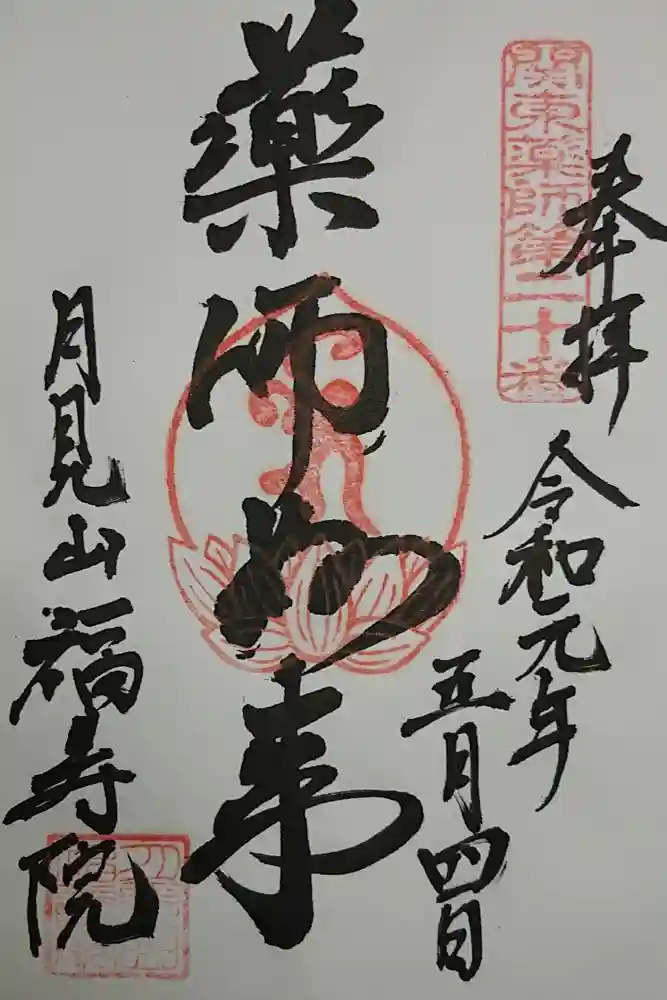 關東藥師第二十番
奉拝
令和元年
五月四日
藥師如来
月見山福寿院